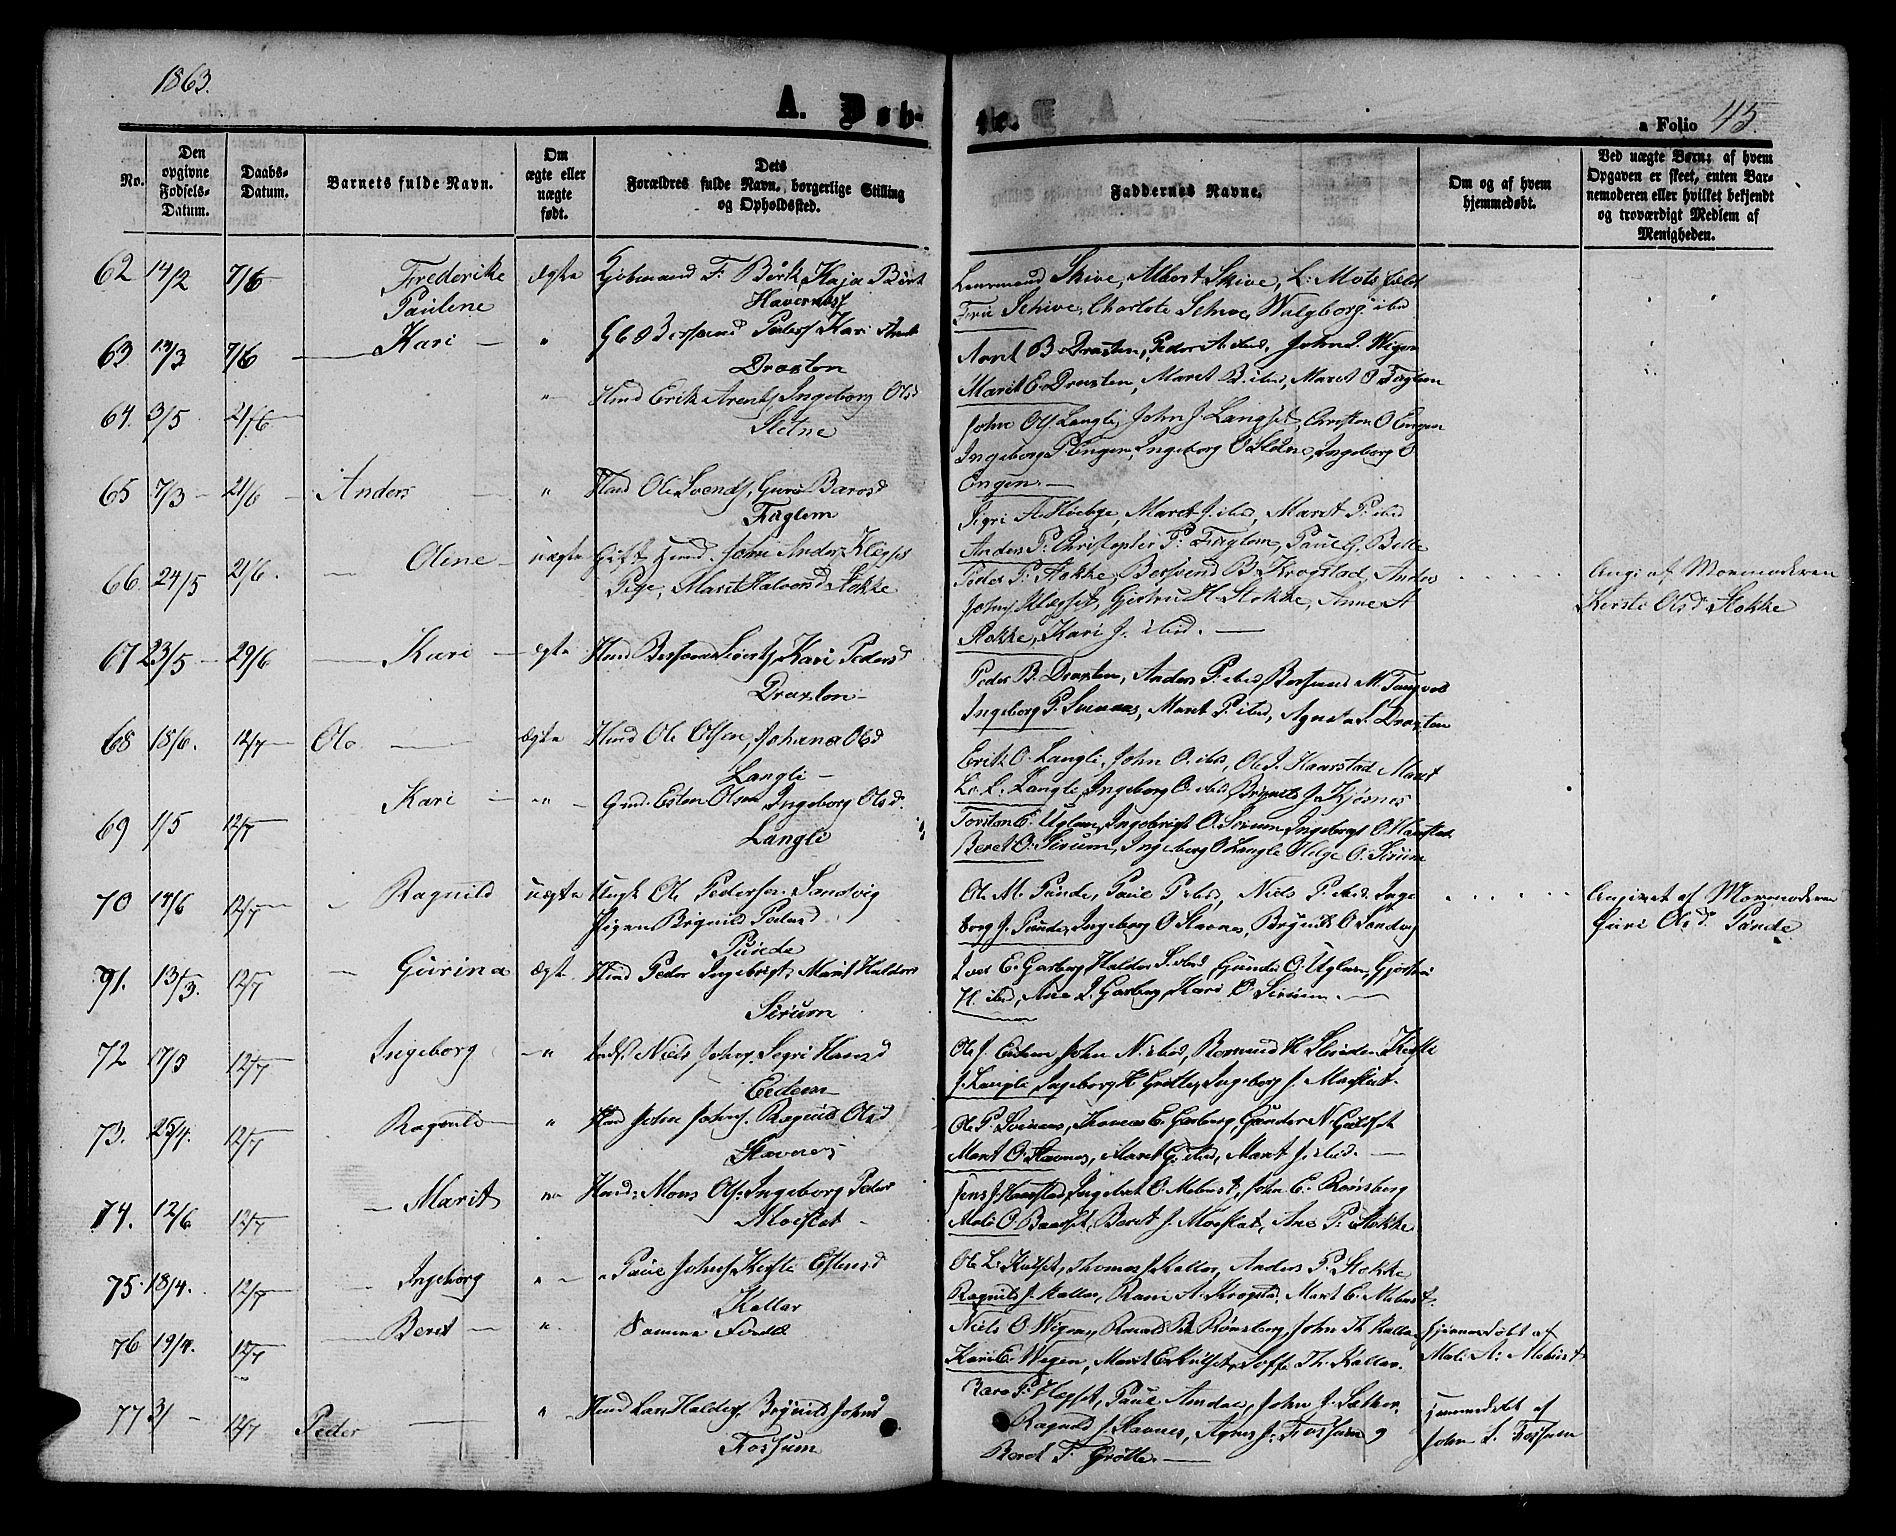 1863.
A. Døb-
te.
a Folio 45
No.
Den opgivne Fødsels-Datum.
Daabs-Datum.
Barnets fulde Navn.
Om ægte eller uægte født.
Dets Forældres fulde Navn, borgerlige Stilling og Opholdssted.
Faddernes Navne.
Om og af hvem hjemmedøbt.
Ved uægte Børn: af hvem Opgaven er skeet, enten Barnemoderen eller hvilket bekjendt og troværdigt Medlem af Menigheden.
62 14/2 7/6 Frederikke Pauline Ægte F: Birk, Kaja Birk
Skive, Albert Skive, L: Motsfeldt
Fru Schive, Charlote Schive, Walgborg ibid
63 13/3 7/6 Kari " Kari
Draxten
Arnt B. Draxten, Peder A. ibid, John P. Wigen
Marit E. Draxten, Maret B. ibid, Maret O. Fuglem
64. 3/5 21/6 " Hmd Erik Arents, Ingeborg Olsd
Sletne
John Ols Langli, John J. Langset, Christen O Engen
Ingeborg P. Engen, Ingeborg O Sletne, Ingeborg O
Engen.
65 7/3 21/6 Anders " Hmd Ole Svends, Guru Baros
Fuglem
Sigri A. Høibye, Maret J. ibid, Maret P. ibid
Anders P: Christopher P: Fuglem, Paul G. Belle
66 24/5 21/6. Olene uægte Gift Hmd. John Anders Klegset
Pige, Marit Halvorsd Stokke
Peder P: Stokke, Bersvend B. Krogstad, Anders
Johns Klegset, Gjertru H. Stokke, Anne A
Stokke, Kari J. ibid.
Angi: af Mormoderen
Kersti Olsd Stokke
67 23/5 29/6 Kari ægte Hmd Bersvend Siverts, Kari Pedersd
Draxten
Peder B. Draxten, Anders P. ibid, Bersvend M. Tangvol
Ingeborg P. Svinaas, Maret P. ibid, Agneta S. Draxten
68 18/6. 12/7 Ole Ægte Hmd Ole Olsen, Johana Olsd
Langli
Erik O. Langli, John O. ibid, Ole J. Haarstad, Maret
L. Langli, Ingeborg O. ibid, Brynild J. Kjøsnes
69 1/5 12/7 Kari " Esten Olsen Ingeborg Olsd.
Langli
Torsten E. Uglem, Ingebrigt O. Sirum, Ingeborg O. Haarstad
Beret O. Sirum, Ingeborg O Langli Helge O. Sirum
70 14/6 12/7 Ragnild uægte Ungk Ole Pedersen Sandvig
Pigen Brynild Pedersd
Punde
Ole M. Punde, Paul P. ibid, Niels P. ibid. Inge
borg J. Punde, Ingeborg O Stavnes, Brynild O Sandvig
Angivet af Mormoderen
Guri Olsd. Punde
71. 13/3. 12/7 Gurina Ægte Hmd Peder Ingebrigts Marit Haldors
Sirum
Iver E. Garberg, Haldor S. ibid, Gunder O. Uglem, Gjertru
H. ibid, Ane I. Garberg, Kari O. Sirum.
72 17/5 12/7 Ingeborg " Inds Niels Johns, Segri Hansd
Eidem
Ole J. Eidem John N. ibid, Bersvend H. Slinden, Kersti
J. Langli, Ingeborg H. Grøtte, Ingeborg J. Moslat.
73. 25/4. 12/7 Ragnild " Hmd John Johns. Ragnild Olsd
Stavnes
Ole P. Svinaas, Thomas E. Garberg, Gunder N. Gulset
Marit O. Stavnes, Maret G. ibid, Marit J. ibid.
74. 12/6 12/7 Marit " Hmd: Mons Ols: Ingeborg Peders
Moslat
Jens J. Haarstad, Ingebret O. Mebust, John E. Rønsberg
Mali O. Baardset, Beret J. Moslat, Ane P. Stokke
75. 18/4. 12/7 Ingeborg " Paul Johns, Kersti Estensd
Kallar
Ole L. Kulset, Thomas J. Kallar, Anders P. Stokke
Ragnild J. Kallar, Rani A. Krogstad, Marit E. Mebust.
76 19/4. 12/7 Beret " Samme
Niels O Wigen, Ronald R. Rønsberg, John Th. Kallar
Kari E. Wigen, Marit E. Kulset, Soffi Th. Kallar.
Hjemmedøbt af
Mali A: Mebust
77 31/ 12/7 Peder " Hmd Lars Haldors. Brynild Johnsd
Fossum
Baro P: Klegset, Paul Amdal, John J. Sether
Ragnild J. Stavnes, Agnes J. Fossum og
Beret T. Grøtte.
hjemmedøbt af
John L. Fossum